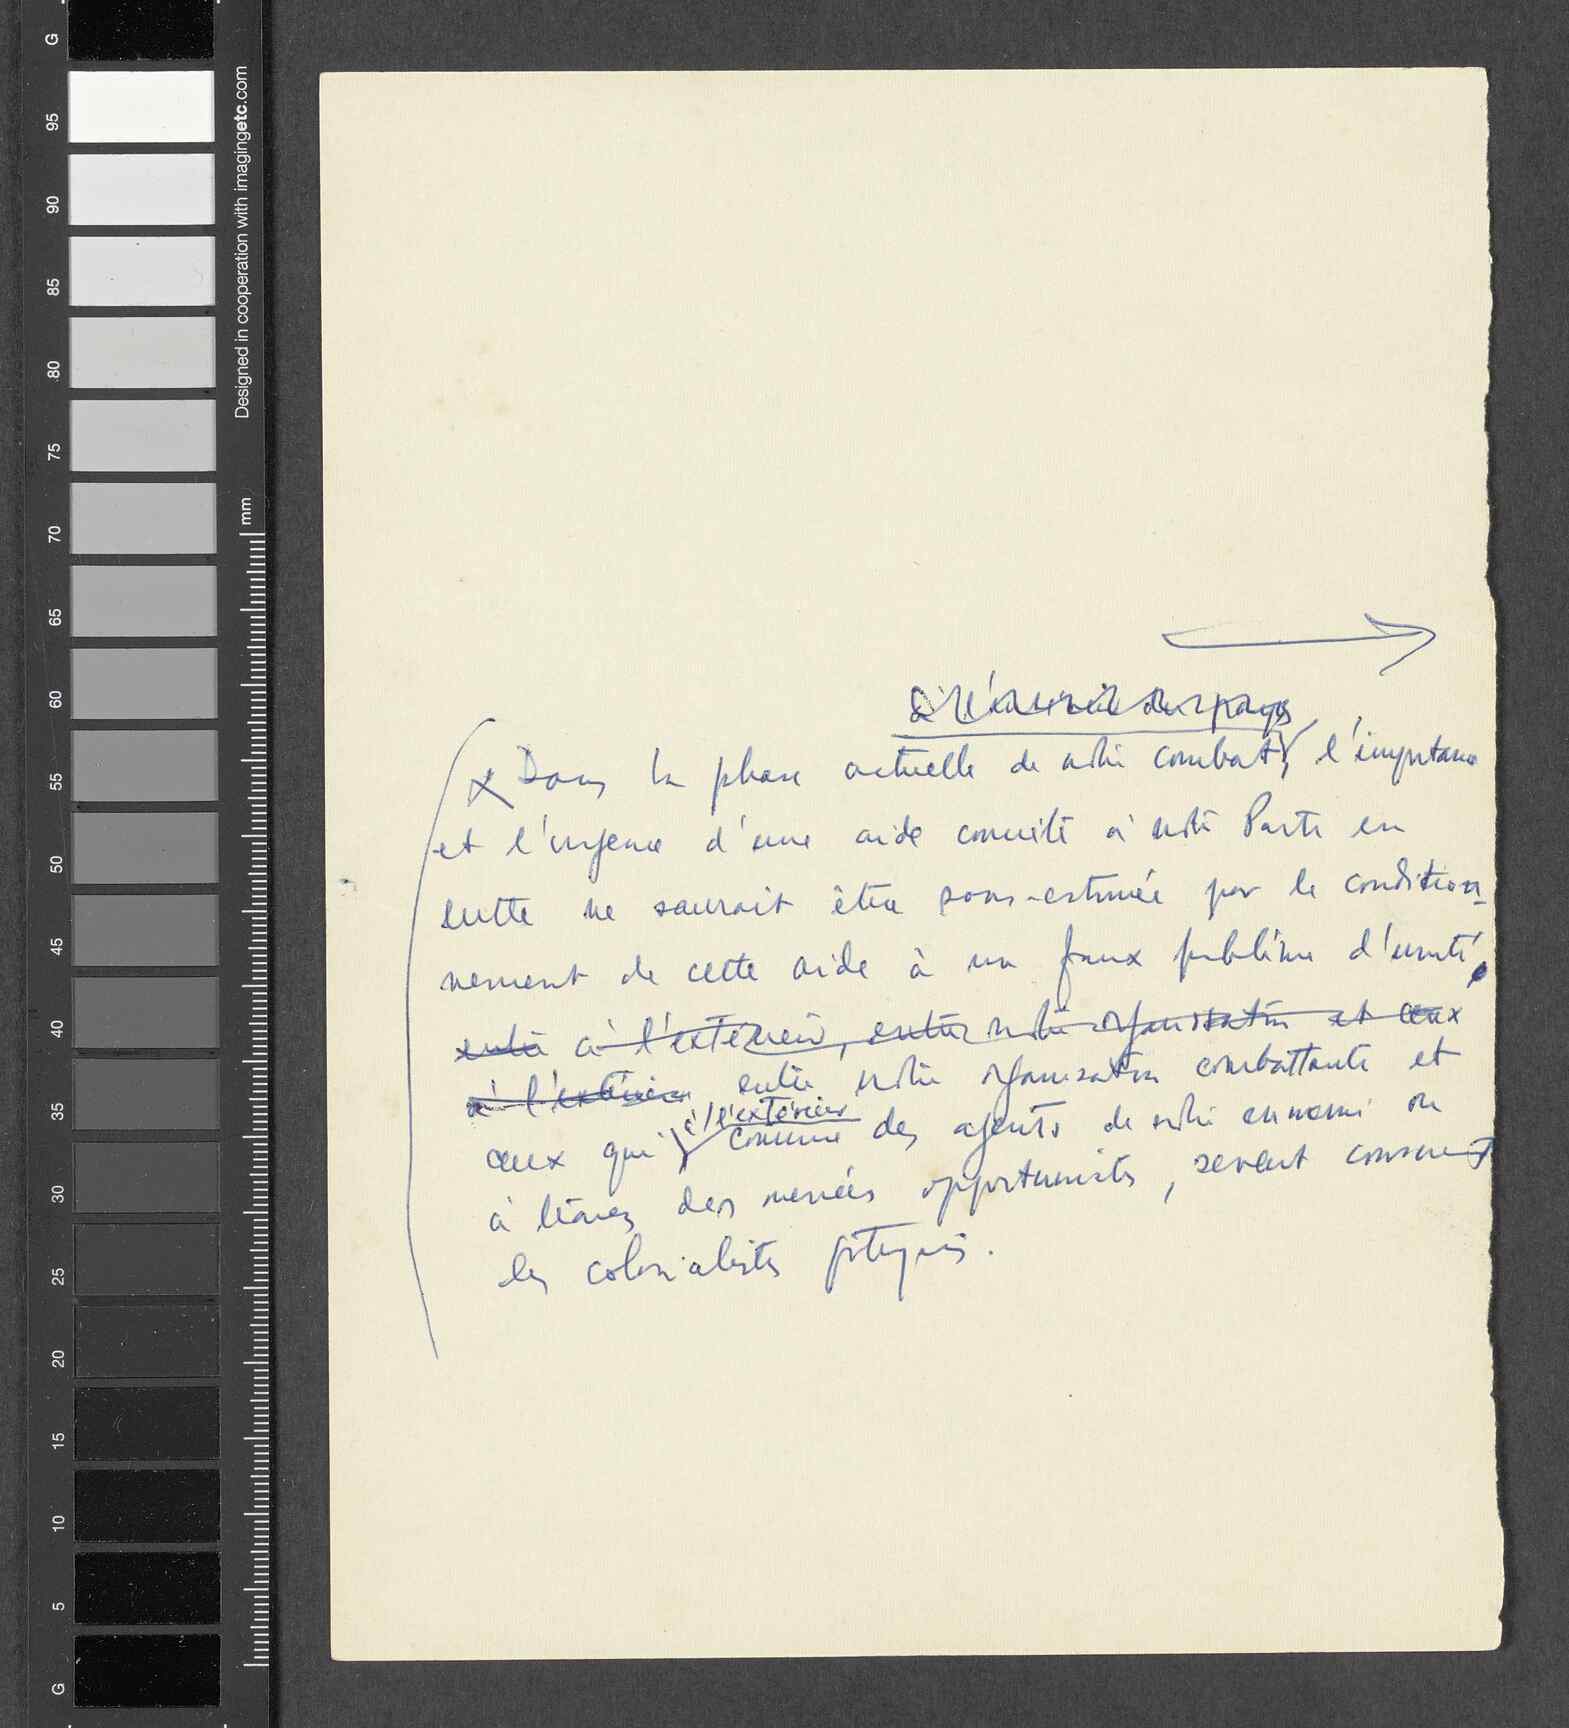 G
95
90
85
80
75
70
65
60
55
50
45
40
35
30
25
20
15
10
5
G
Designed in cooperation with imagingetc.com
mm
à l'extérieur du pays
x Dans la phase actuelle de notre combat, l'importance
et l'urgence d'une aide concrète à notre Parti en
lutte ne saurait être sous-estimée par le condition-
nement de cette aide à un faux problème d'unité,
entre à l'extérieur, entre notre organisation et ceux
à l'extérieur entre notre organisation combattante et
à l'extérieur
ceux qui comme des agents de notre ennemi ou
à travers des menées opportunistes, servent
les colonialistes portugais.